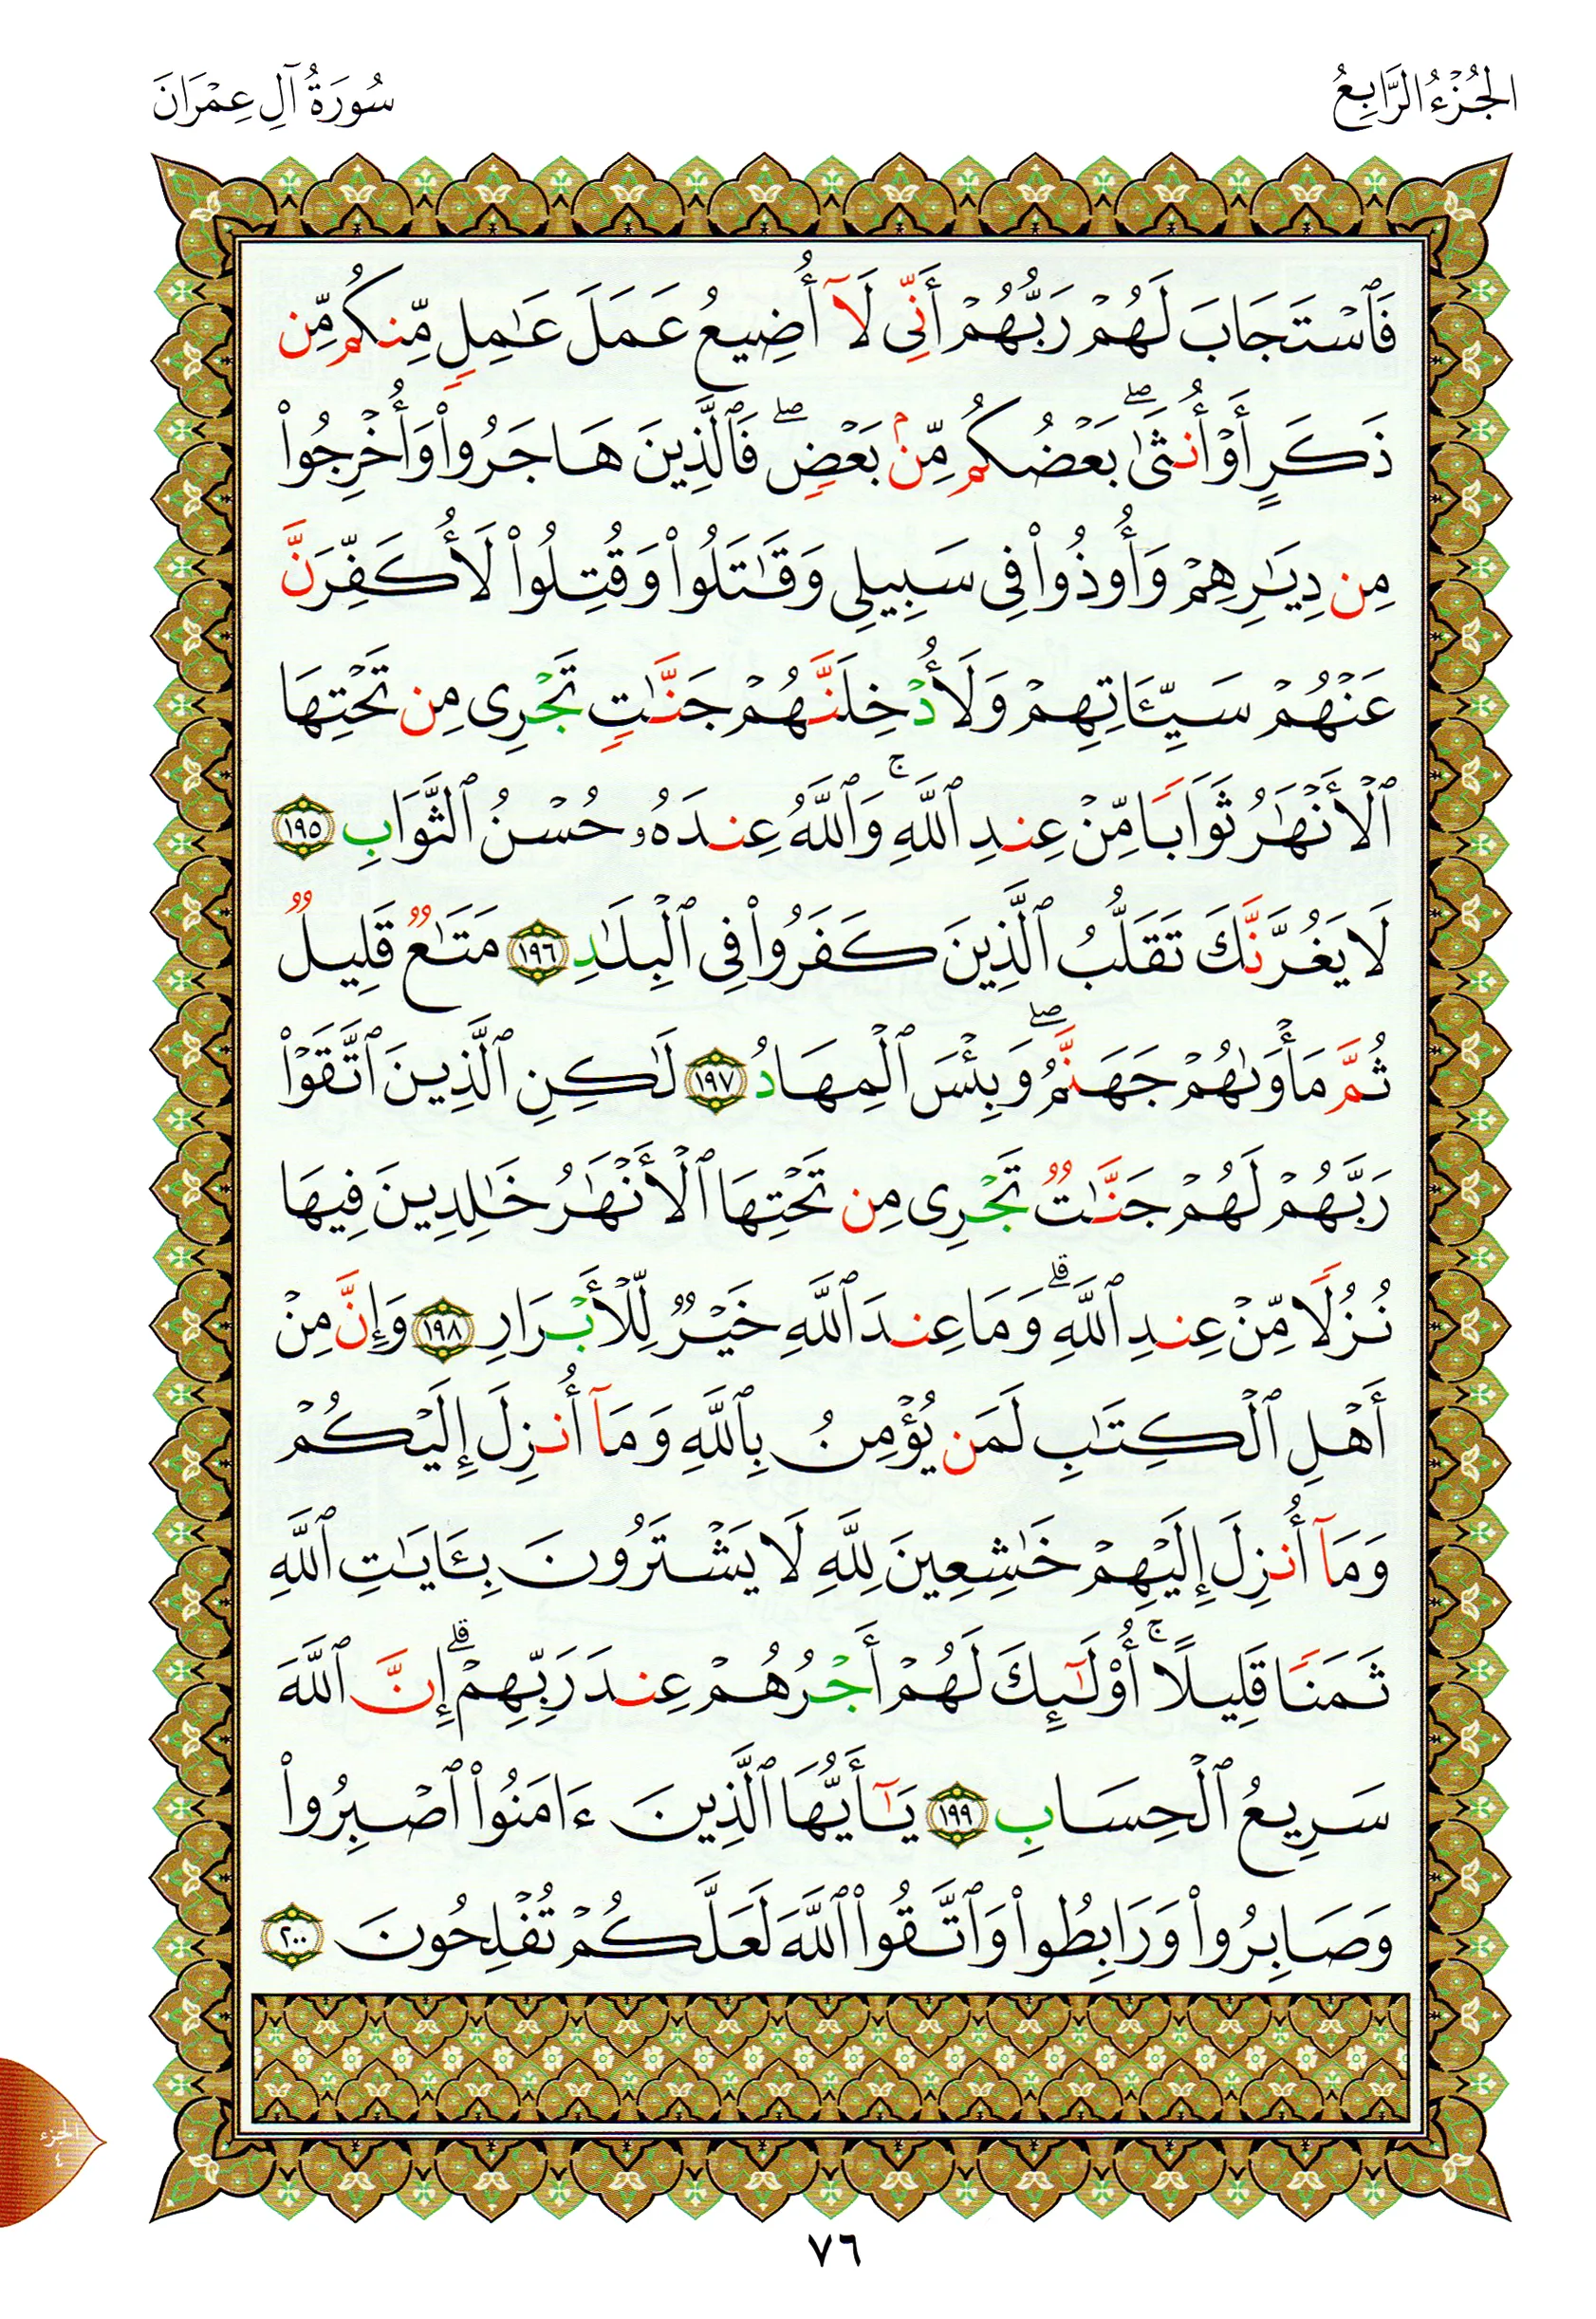 الجُزْءُ الرَّابِعُ
سُورَةُ آلِ عِمْرَانَ
فَٱسْتَجَابَ لَهُمْ رَبُّهُمْ أَنِّى لَآ أُضِيعُ عَمَلَ عَٰمِلٍ مِّنكُم مِّن
ذَكَرٍ أَوْ أُنثَىٰ ۖ بَعْضُكُم مِّنۢ بَعْضٍ ۖ فَٱلَّذِينَ هَاجَرُوا۟ وَأُخْرِجُوا۟
مِن دِيَٰرِهِمْ وَأُوذُوا۟ فِى سَبِيلِى وَقَٰتَلُوا۟ وَقُتِلُوا۟ لَأُكَفِّرَنَّ
عَنْهُمْ سَيِّـَٔاتِهِمْ وَلَأُدْخِلَنَّهُمْ جَنَّٰتٍ تَجْرِى مِن تَحْتِهَا
ٱلْأَنْهَٰرُ ثَوَابًا مِّنْ عِندِ ٱللَّهِ ۚ وَٱللَّهُ عِندَهُۥ حُسْنُ ٱلثَّوَابِ ١٩٥
لَا يَغُرَّنَّكَ تَقَلُّبُ ٱلَّذِينَ كَفَرُوا۟ فِى ٱلْبِلَٰدِ ١٩٦ مَتَٰعٌ قَلِيلٌ
ثُمَّ مَأْوَىٰهُمْ جَهَنَّمُ ۖ وَبِئْسَ ٱلْمِهَادُ ١٩٧ لَٰكِنِ ٱلَّذِينَ ٱتَّقَوْا۟
رَبَّهُمْ لَهُمْ جَنَّٰتٌ تَجْرِى مِن تَحْتِهَا ٱلْأَنْهَٰرُ خَٰلِدِينَ فِيهَا
نُزُلًا مِّنْ عِندِ ٱللَّهِ ۗ وَمَا عِندَ ٱللَّهِ خَيْرٌ لِّلْأَبْرَارِ ١٩٨ وَإِنَّ مِنْ
أَهْلِ ٱلْكِتَٰبِ لَمَن يُؤْمِنُ بِٱللَّهِ وَمَآ أُنزِلَ إِلَيْكُمْ
وَمَآ أُنزِلَ إِلَيْهِمْ خَٰشِعِينَ لِلَّهِ لَا يَشْتَرُونَ بِـَٔايَٰتِ ٱللَّهِ
ثَمَنًا قَلِيلًا ۚ أُو۟لَٰٓئِكَ لَهُمْ أَجْرُهُمْ عِندَ رَبِّهِمْ ۗ إِنَّ ٱللَّهَ
سَرِيعُ ٱلْحِسَابِ ١٩٩ يَٰٓأَيُّهَا ٱلَّذِينَ ءَامَنُوا۟ ٱصْبِرُوا۟
وَصَابِرُوا۟ وَرَابِطُوا۟ وَٱتَّقُوا۟ ٱللَّهَ لَعَلَّكُمْ تُفْلِحُونَ ٢٠٠
الجزء
٤
٧٦